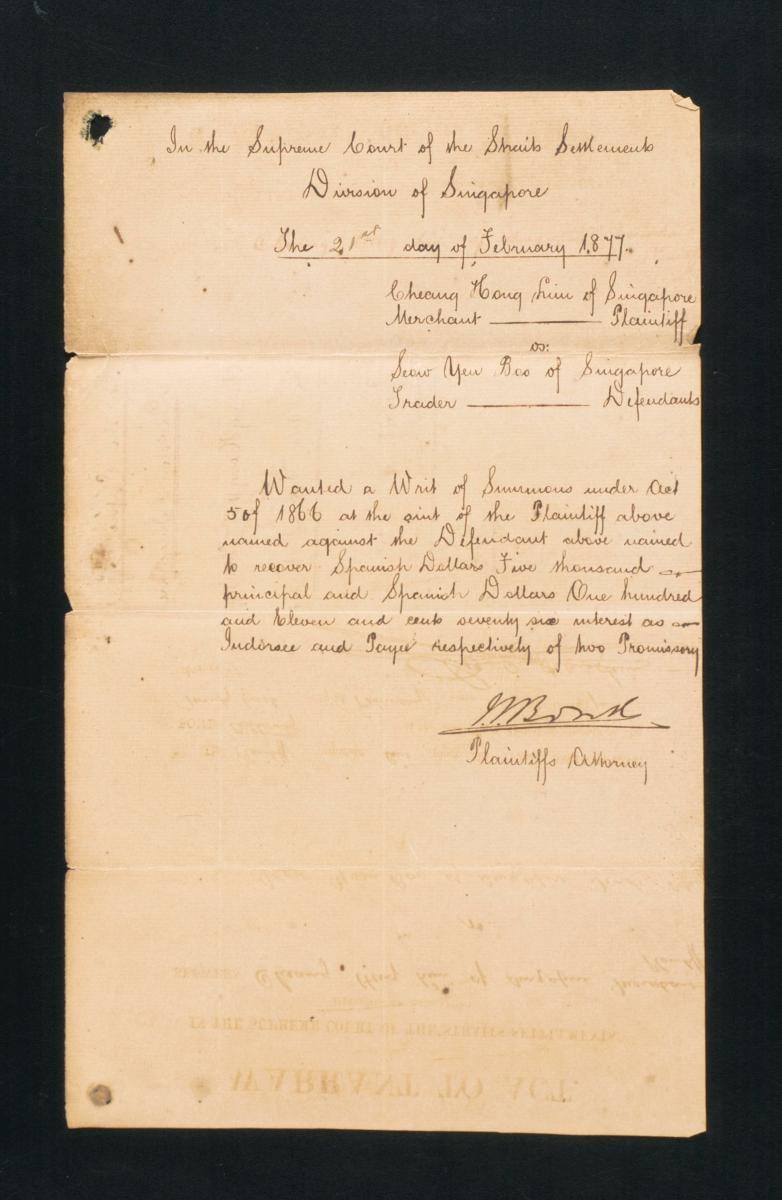 In the Supreme Court of the Straits Settlements
Division of Singapore
The 21st day of February 1877.
Cheang Hong Lim of Singapore
Merchant ——— Plaintiff
vs:
Seow Yeu Boo of Singapore
Trader ——— Defendants
Wanted a Writ of Summons under Act
5 of 1866 at the suit of the Plaintiff above
named against the Defendant above named
to recover Spanish Dollars Five thousand
principal and Spanish Dollars One hundred
and Eleven and cents seventy six interest as
Indorsee and Payee respectively of two Promissory
Plaintiffs Attorney
BETWEEN Cheang Hong Lim of Singapore Merchant
IN THE SUPREME COURT OF THE STRAITS SETTLEMENTS
WARRANT TO ACT.